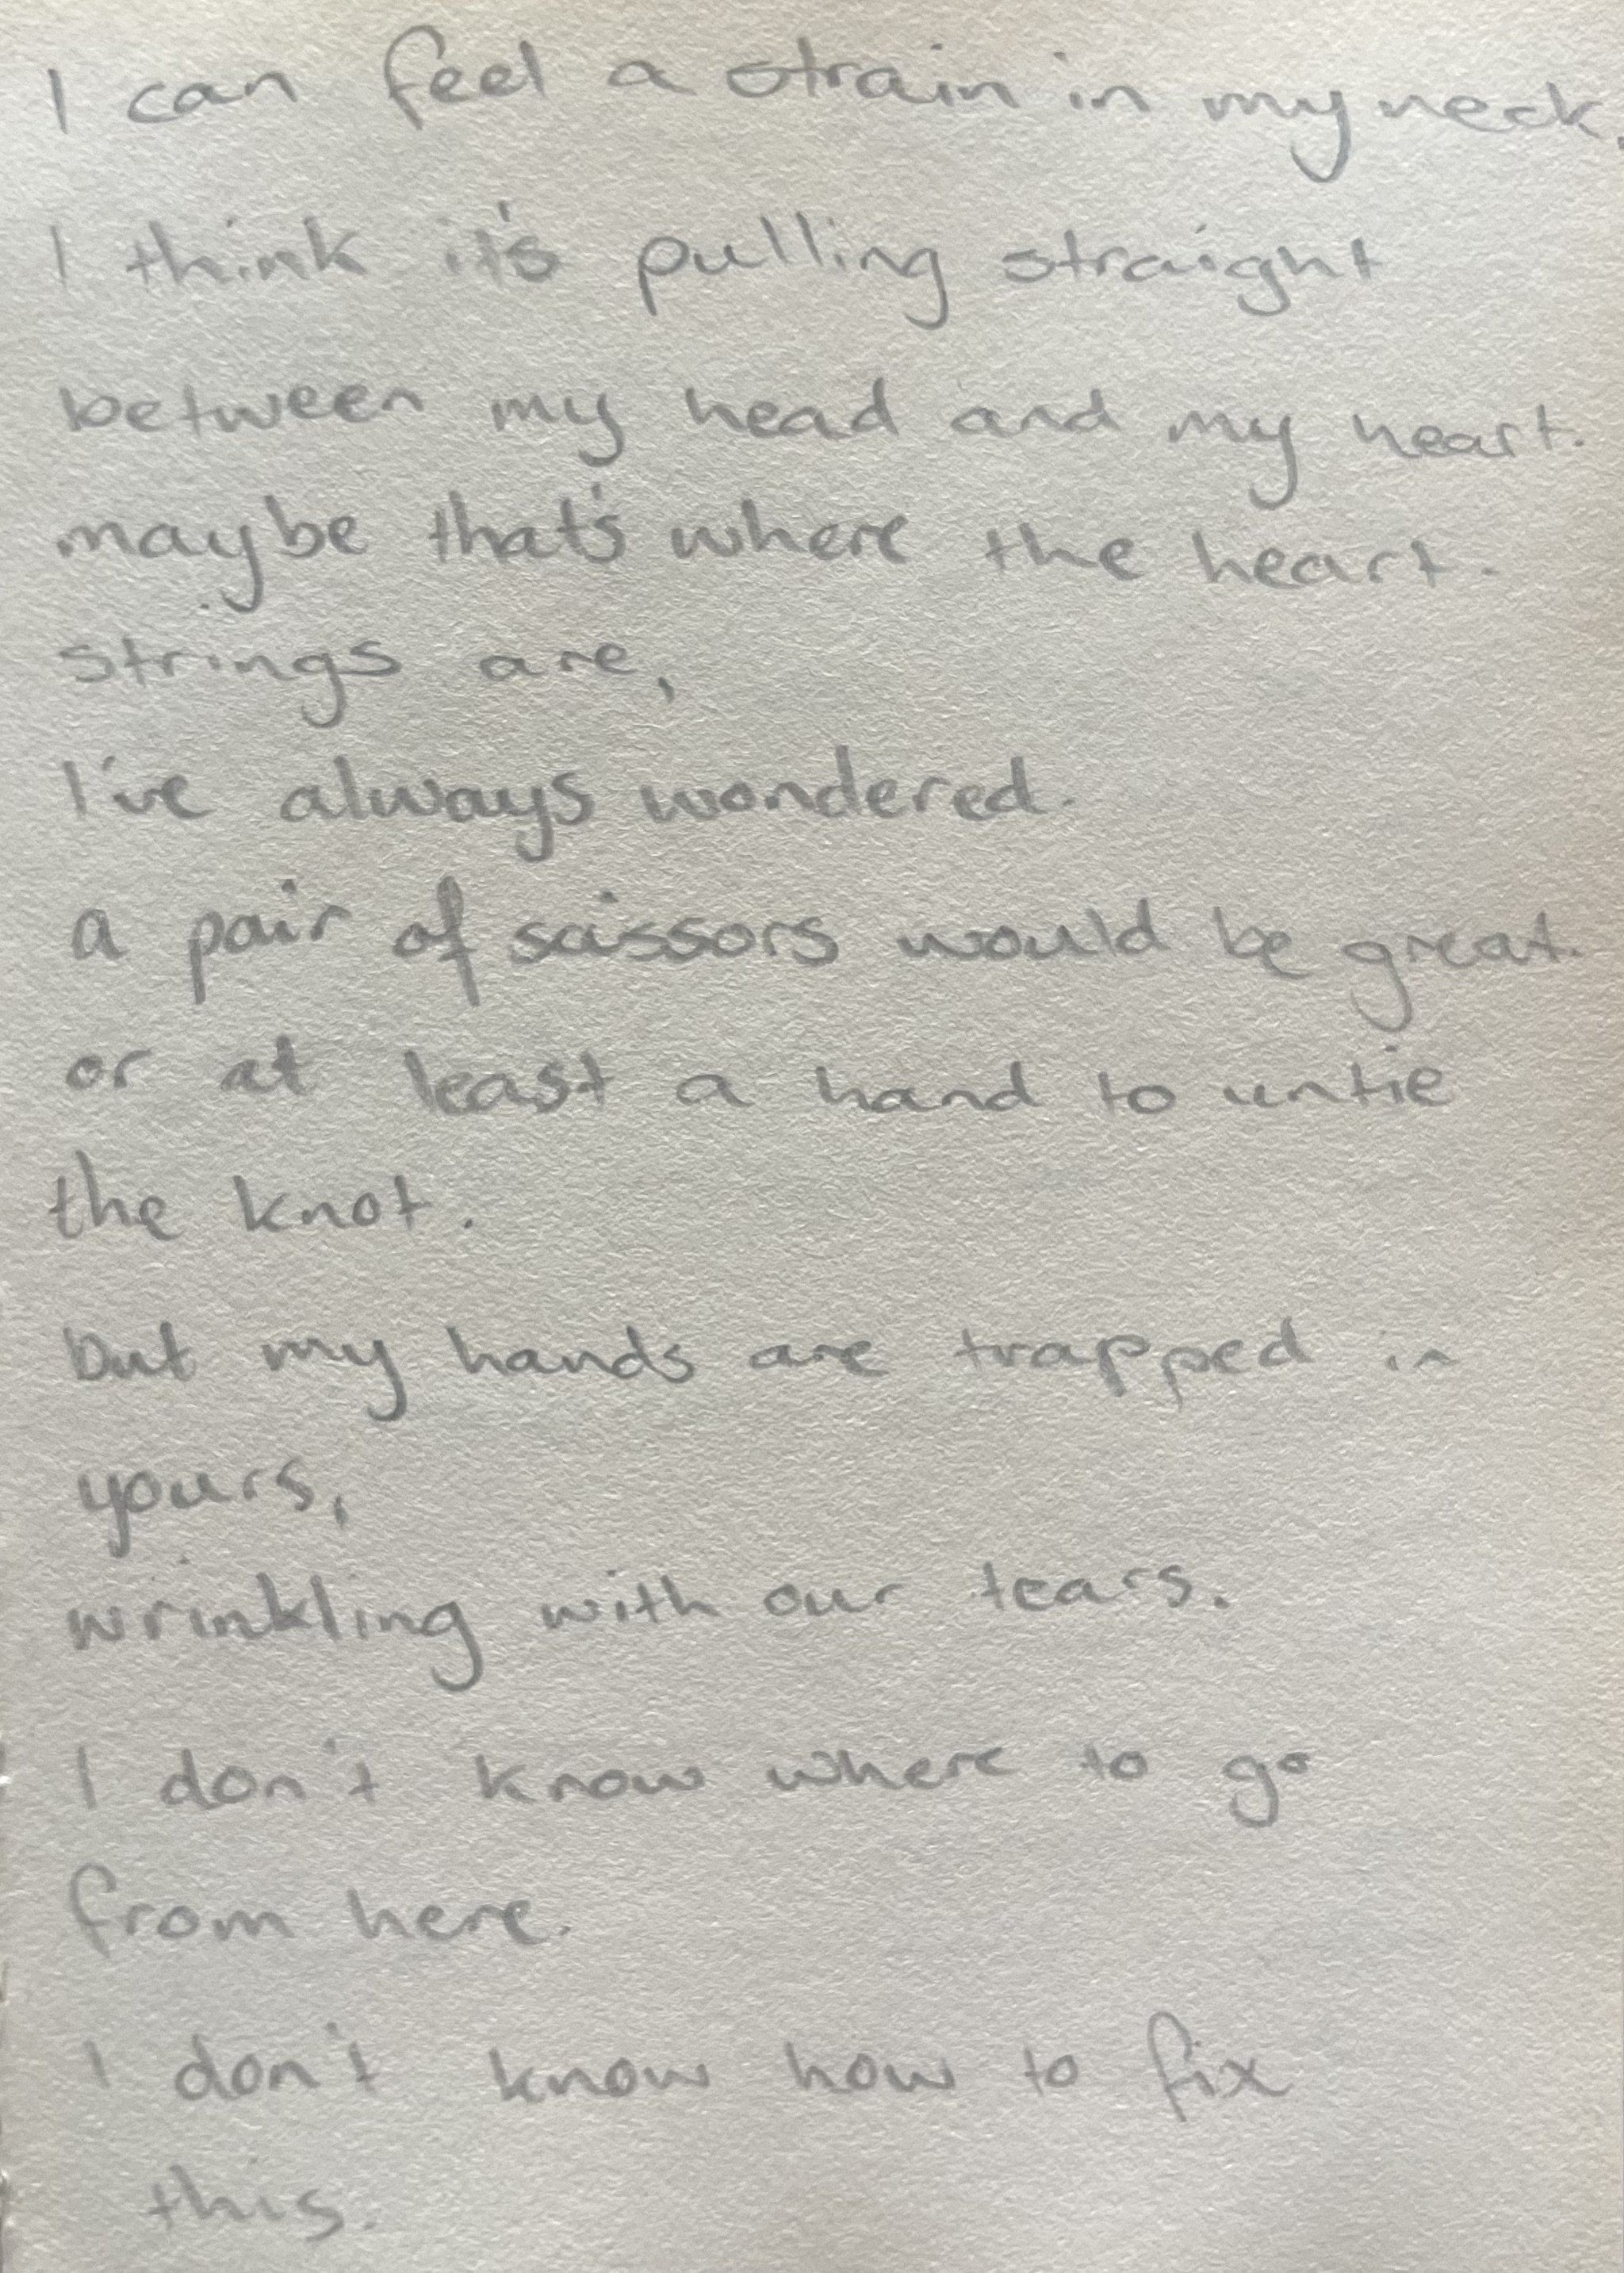 I can feel a strain in my neck,
I think it's pulling straight
between my head and my heart.
maybe that's where the heart-
strings are,
I've always wondered.
a pair of scissors would be great.
or at least a hand to untie
the knot.
but my hands are trapped in
yours,
wrinkling with our tears.
I don't know where to go
from here.
I don't know how to fix
this.